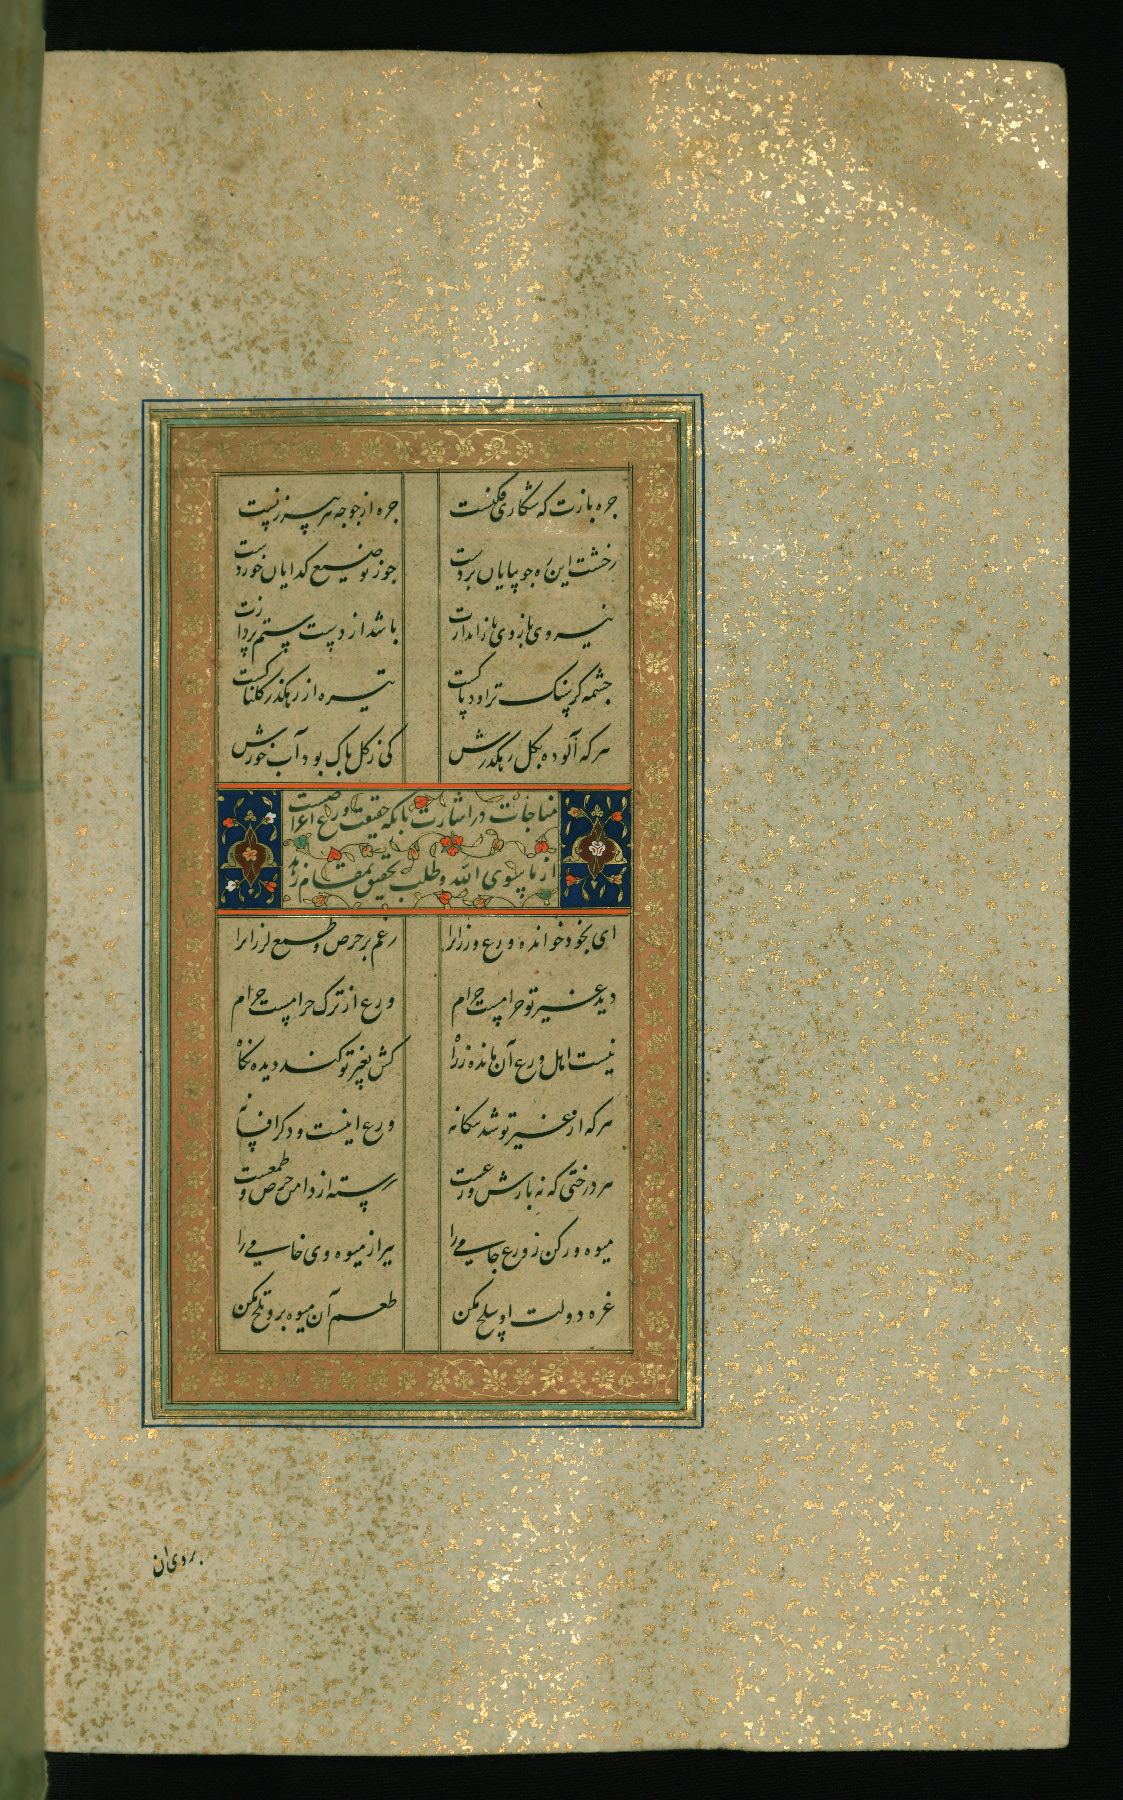 جره بازت که شکاری فکنست جره از جوجه هر پیرزنیست
رخشت این ره جو بپایان بردست جو ز توضیع کدایان خوردست
نیروی بازوی بازاندازت باشد از دست ستم پردازت
چشمه کز سنک تراود پاکست تیره از رهکذر کلناکست
هر که آلوده بکل رهکذرش کی ز کل پاک بود آب خورش
مناجات در اشارت بانکه حقیقت ورع اعراضست
از ما سوی الله و طلب تحقیق بمقام زهد
ای بخود خوانده ورع ورزانرا رغم بر حرص و طمع لرزانرا
دید غیر تو حرامیست حرام ورع از ترک حرامیست حرام
نیست اهل ورع آن مانده ز راه کش بغیر تو کند دیده نکاه
هر که از غیر تو شد بیکانه ورع اینست و دکر افسانه
هر درختی که نه بارش ورعست رسته از دامن حرص و طمعست
میوه ور کن ز ورع جامی را بر از میوه وی خامی را
غره دولت او سلخ مکن طعم آن میوه برو تلخ مکن
بر وی ان